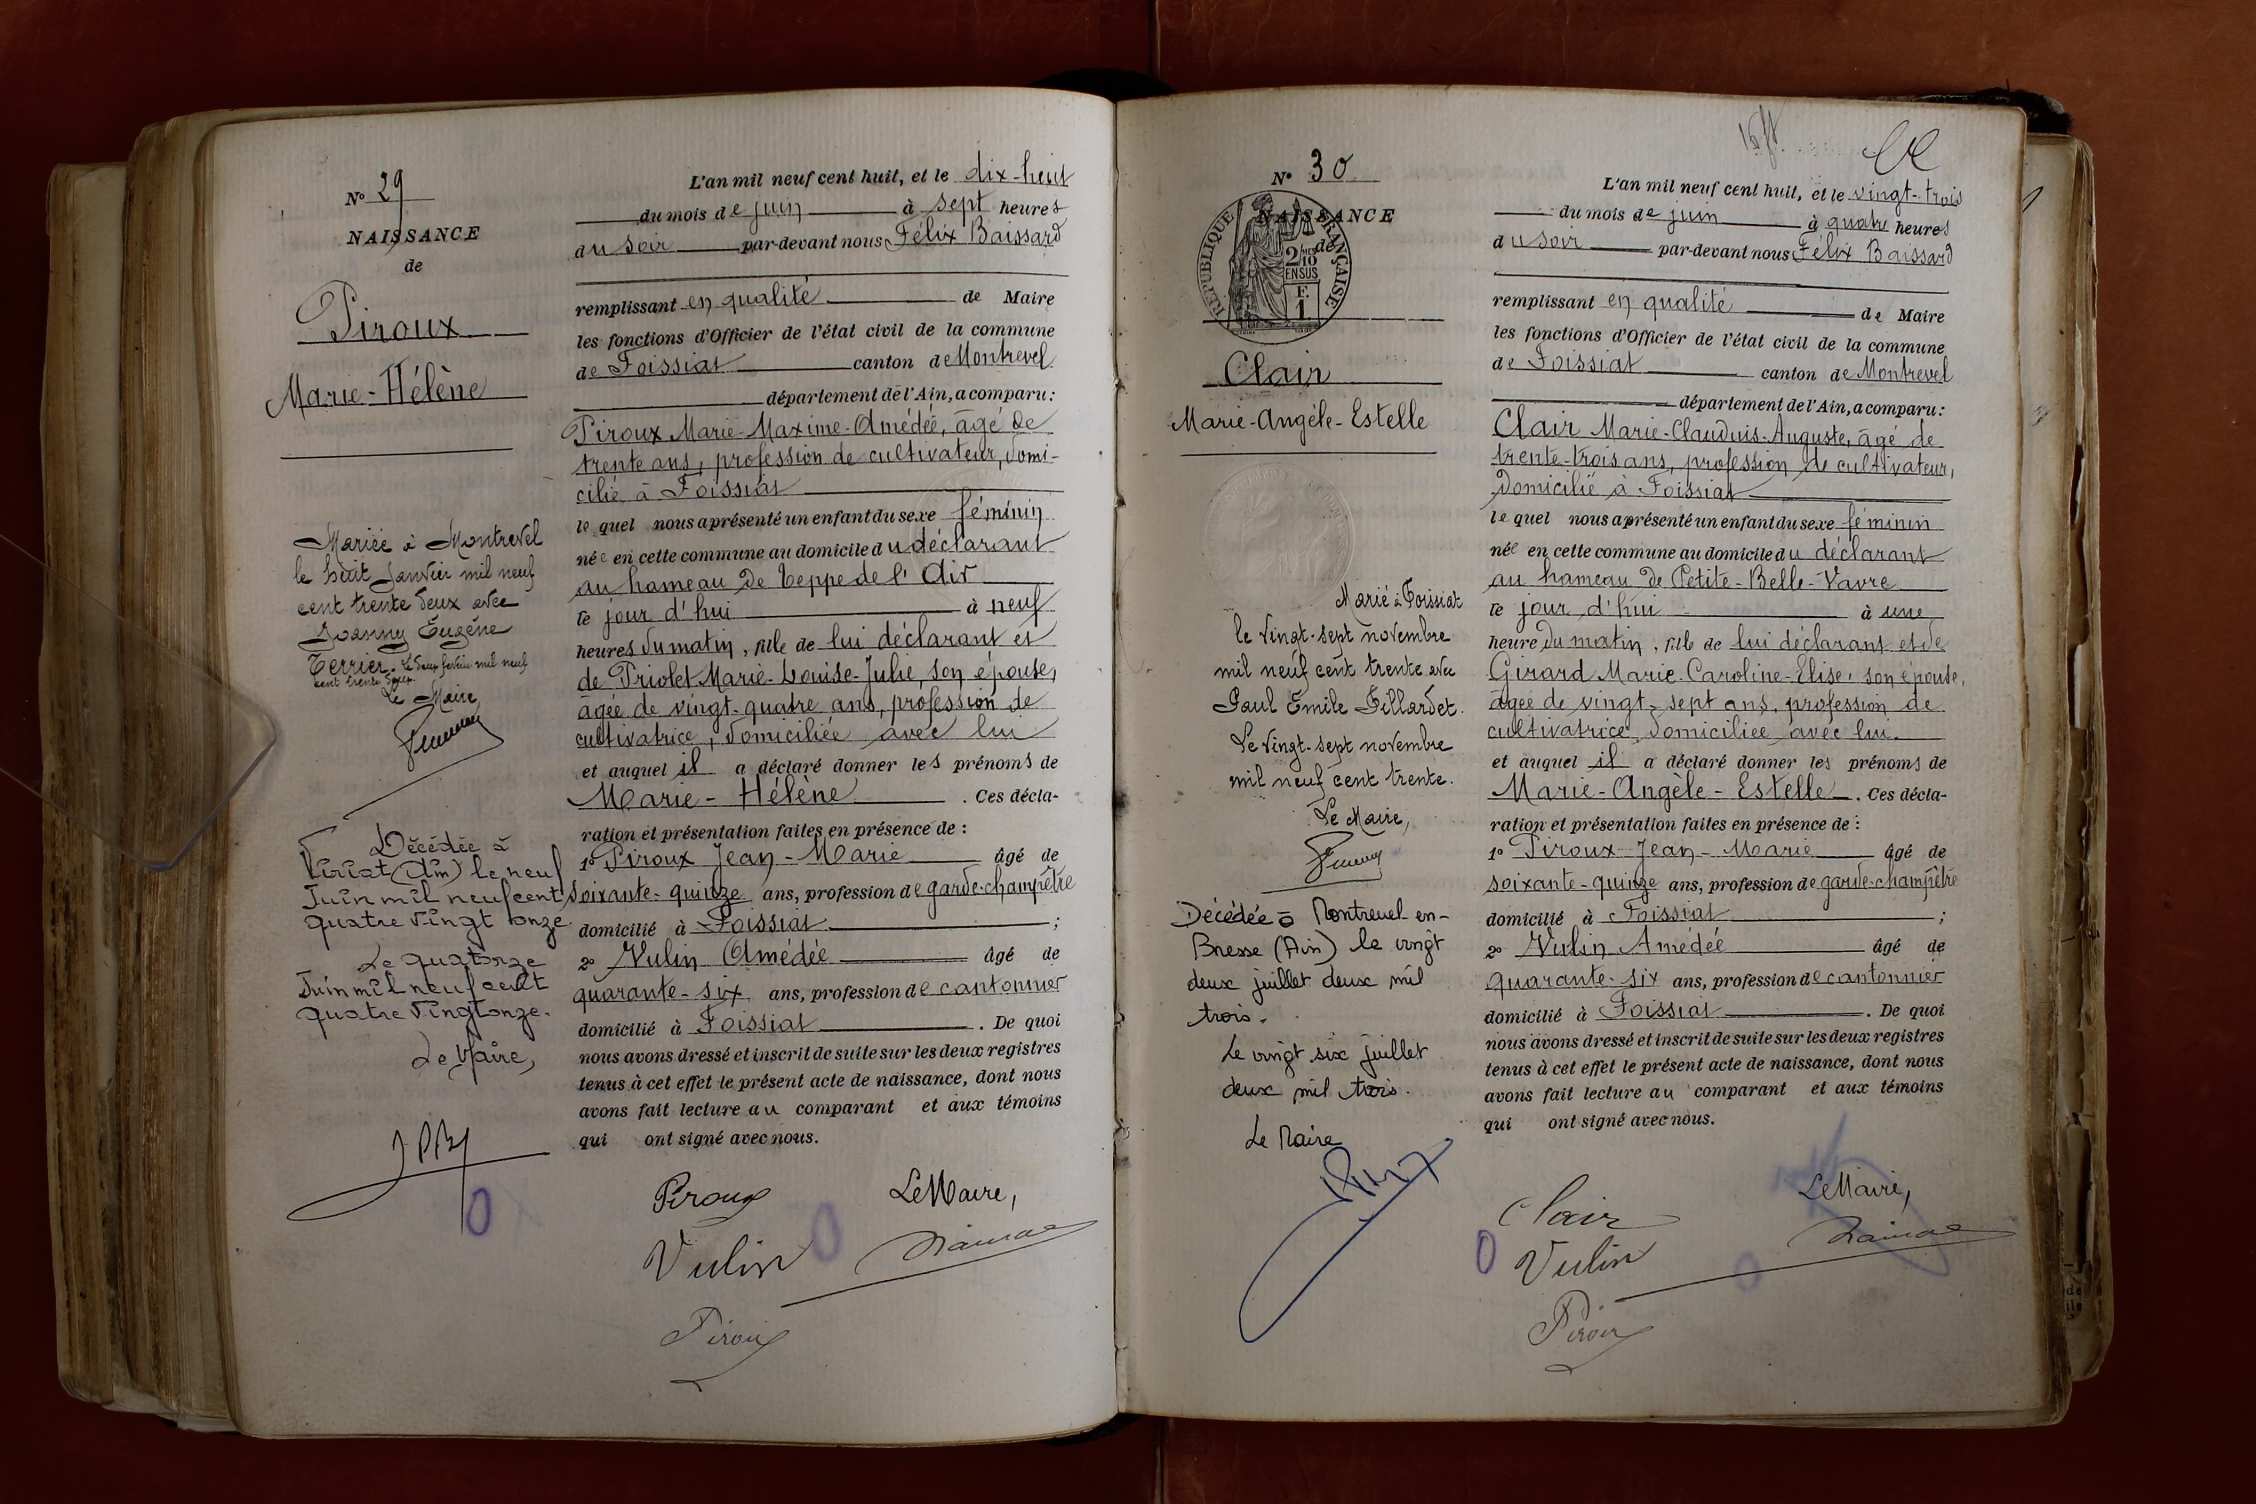 N° 29
NAISSANCE
de
Piroux
Marie-Hélène
Mariée à Montrevel
le huit Janvier mil neuf
cent trente deux avec
Joanny Eugène
Terrier. Le deux février mil neuf
cent trente deux.
Le Maire
Décédée à
Viriat (Ain) le neuf
Juin mil neuf cent
quatre vingt onze
Le quatorze
Juin mil neuf cent
quatre vingt onze.
Le Maire,
L'an mil neuf cent huit, et le dix-huit
du mois de juin à sept heures
du soir par-devant nous Félix Baissard
remplissant en qualité de Maire
les fonctions d'Officier de l'état civil de la commune
de Foissiat canton de Montrevel
département de l'Ain, a comparu :
Piroux Marie-Maxime-Amédée, âgé de
trente ans, profession de cultivateur, domi-
cilié à Foissiat
le quel nous a présenté un enfant du sexe féminin
née en cette commune au domicile du déclarant
au hameau de Teppe de l'Air
le jour d'hui à neuf
heures du matin, fille de lui déclarant et
de Priolet Marie-Louise-Julie, son épouse,
âgée de vingt-quatre ans, profession de
cultivatrice, domiciliée avec lui
et auquel il a déclaré donner les prénoms de
Marie-Hélène. Ces décla-
ration et présentation faites en présence de :
1° Piroux Jean-Marie âgé de
soixante-quinze ans, profession de garde-champêtre
domicilié à Foissiat ;
2° Vulin Amédée âgé de
quarante-six ans, profession de cantonnier
domicilié à Foissiat. De quoi
nous avons dressé et inscrit de suite sur les deux registres
tenus à cet effet le présent acte de naissance, dont nous
avons fait lecture au comparant et aux témoins
qui ont signé avec nous.
Piroux Le Maire,
Vulin
Piroux
N° 30
NAISSANCE
de
RÉPUBLIQUE FRANÇAISE
2/10 EN SUS
F.
1
Clair
Marie-Angèle-Estelle
Marié à Foissiat
le vingt-sept novembre
mil neuf cent trente avec
Paul Emile Pillardet.
Le vingt-sept novembre
mil neuf cent trente.
Le Maire,
Décédée à Montrevel-en-
Bresse (Ain) le vingt
deux juillet deux mil
trois.
Le vingt six juillet
deux mil trois.
Le Maire
L'an mil neuf cent huit, et le vingt-trois
du mois de juin à quatre heures
du soir par-devant nous Félix Baissard
remplissant en qualité de Maire
les fonctions d'Officier de l'état civil de la commune
de Foissiat canton de Montrevel
département de l'Ain, a comparu :
Clair Marie-Claudius-Auguste, âgé de
trente-trois ans, profession de cultivateur,
domicilié à Foissiat
le quel nous a présenté un enfant du sexe féminin
née en cette commune au domicile du déclarant
au hameau de Petite-Belle-Vavre
le jour d'hui à une
heure du matin, fille de lui déclarant et de
Girard Marie-Caroline-Elise, son épouse,
âgée de vingt-sept ans, profession de
cultivatrice, domiciliée avec lui
et auquel il a déclaré donner les prénoms de
Marie-Angèle-Estelle. Ces décla-
ration et présentation faites en présence de :
1° Piroux Jean-Marie âgé de
soixante-quinze ans, profession de garde-champêtre
domicilié à Foissiat ;
2° Vulin Amédée âgé de
quarante-six ans, profession de cantonnier
domicilié à Foissiat. De quoi
nous avons dressé et inscrit de suite sur les deux registres
tenus à cet effet le présent acte de naissance, dont nous
avons fait lecture au comparant et aux témoins
qui ont signé avec nous.
Clair Le Maire,
Vulin
Piroux